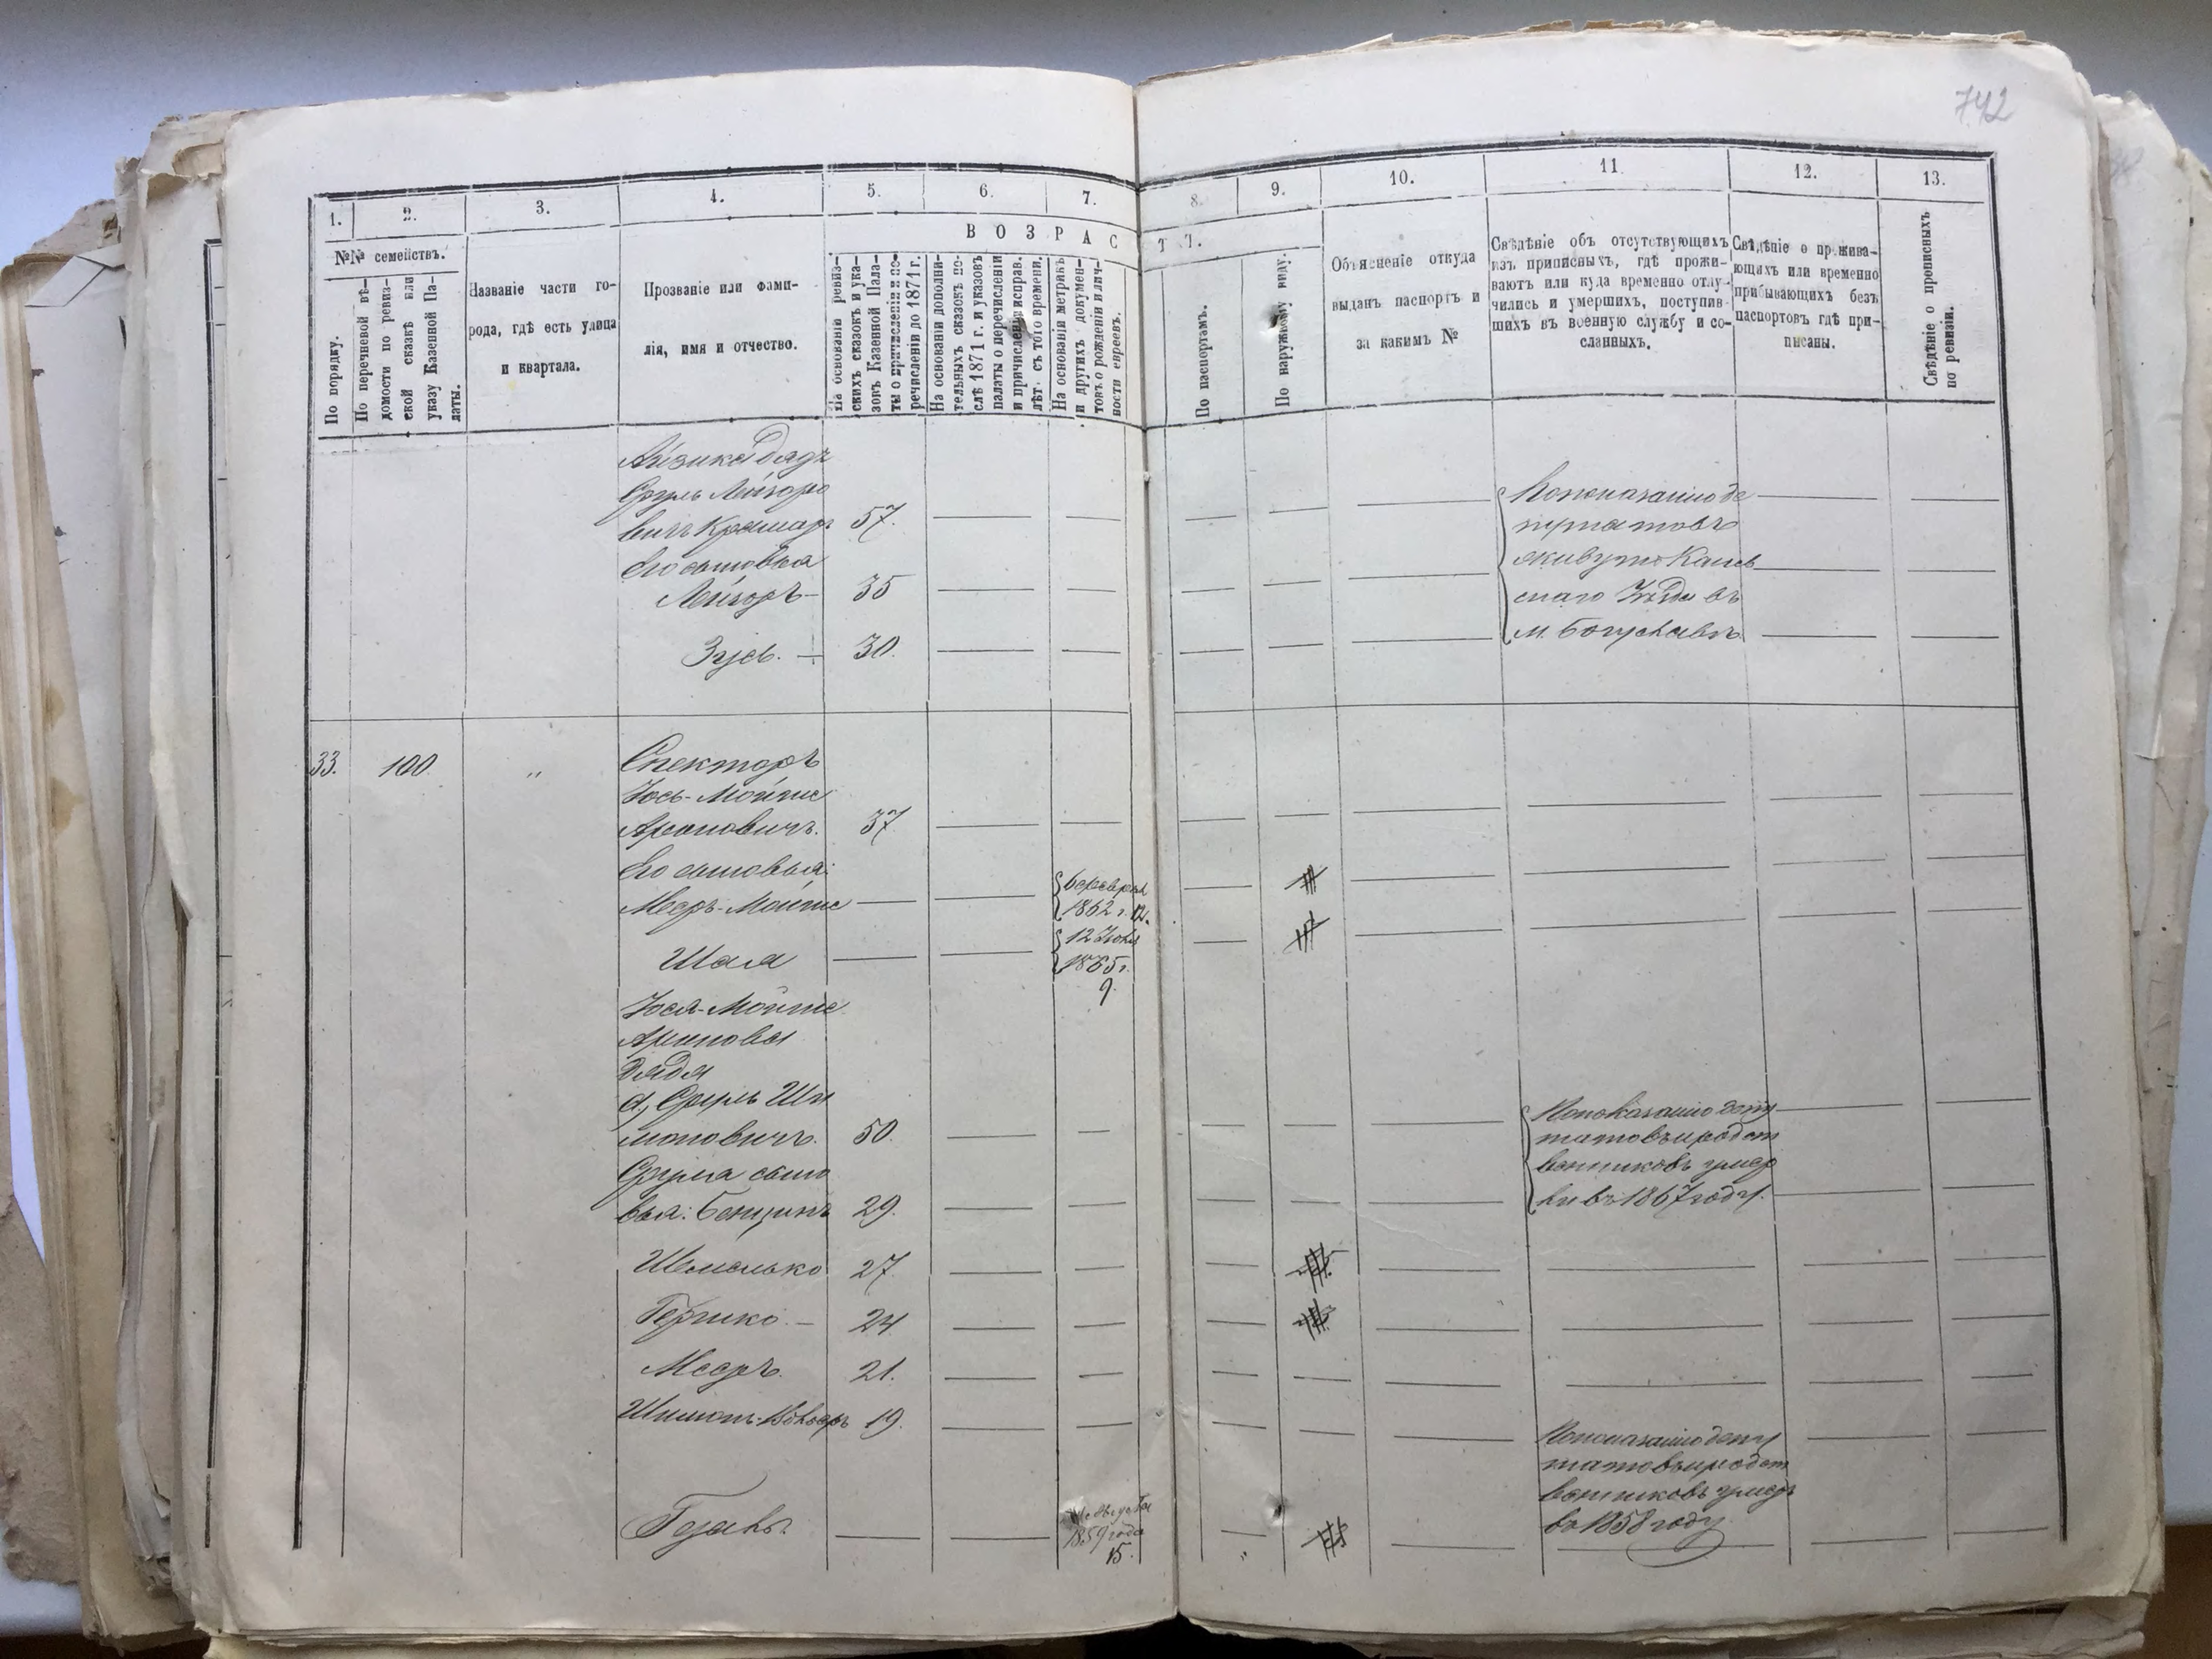 742
1.
2.
3.
4.
5.
6.
7.
8.
9.
10.
11.
12.
13.
№№ семействъ.
По порядку.
По перечневой вѣ-
домости по ревиз-
ской сказкѣ или
указу Казенной Па-
латы.
Названіе части го-
рода, гдѣ есть улица
и квартала.
Прозваніе или фами-
лія, имя и отчество.
В О З Р А С Т Ъ.
На основаніи ревиз-
скихъ сказокъ и ука-
зокъ Казенной Пала-
ты о причисленіи и пе-
речисленіи до 1871 г.
На основаніи дополни-
тельныхъ сказокъ по-
слѣ 1871 г. и указовъ
палаты о перечисленіи
и причисленіи исправ.
лѣт. съ того времени.
На основаніи метрикъ
и другихъ докумен-
товъ о рожденіи и лич-
ности евреевъ.
По паспортамъ.
По наружному виду.
Объясненіе откуда
выданъ паспортъ и
за какимъ №
Свѣдѣніе объ отсутствующихъ
изъ приписныхъ, гдѣ прожи-
ваютъ или куда временно отлу-
чились и умершихъ, поступив-
шихъ въ военную службу и со-
сланныхъ.
Свѣдѣніе о прожива-
ющихъ или временно
прибывающихъ безъ
паспортовъ гдѣ при-
писаны.
Свѣдѣніе о прописныхъ
по ревизіи.
Айзика дядя
Сруль Лейзоро
вичъ 57.
Его сыновья
Лейзоръ 35
Зусь. 30.
По показанію де
путатовъ
живутъ Канев
скаго Уѣзда въ
м. Богуславѣ.
33. 100 „ Спекторъ
Іось-Мойше
Ароновичъ. 37
Его сыновья:
Мееръ-Мойше
6 февраля
1862 г. 12.
Шая
12 Іюня
1865 г.
9.
Іося-Мойше
Аронова
дядя
а, Сруль Ши
моновичъ. 50.
Сруля сыно
вья: Бенціонъ 29.
По показанію депу
татовъ и родст
венниковъ умер
ли въ 1867 году.
Шмелько 27.
Гершко. 24
Мееръ. 21.
Шимонъ-Вольфъ 19.
По показанію депу
татовъ и родст
венниковъ умеръ
въ 1858 году
Августа
1859 года
15.